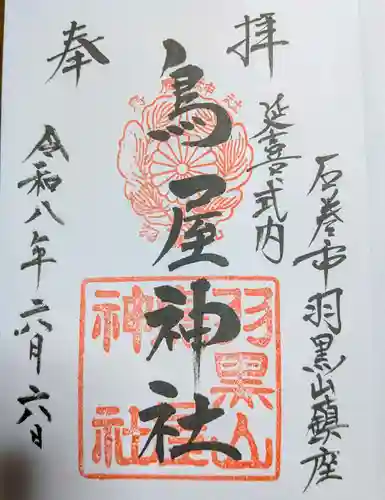 奉拝
石巻市羽黒山鎮座
延喜式内
鳥屋神社
令和八年六月六日
羽黒山
鳥屋
神社